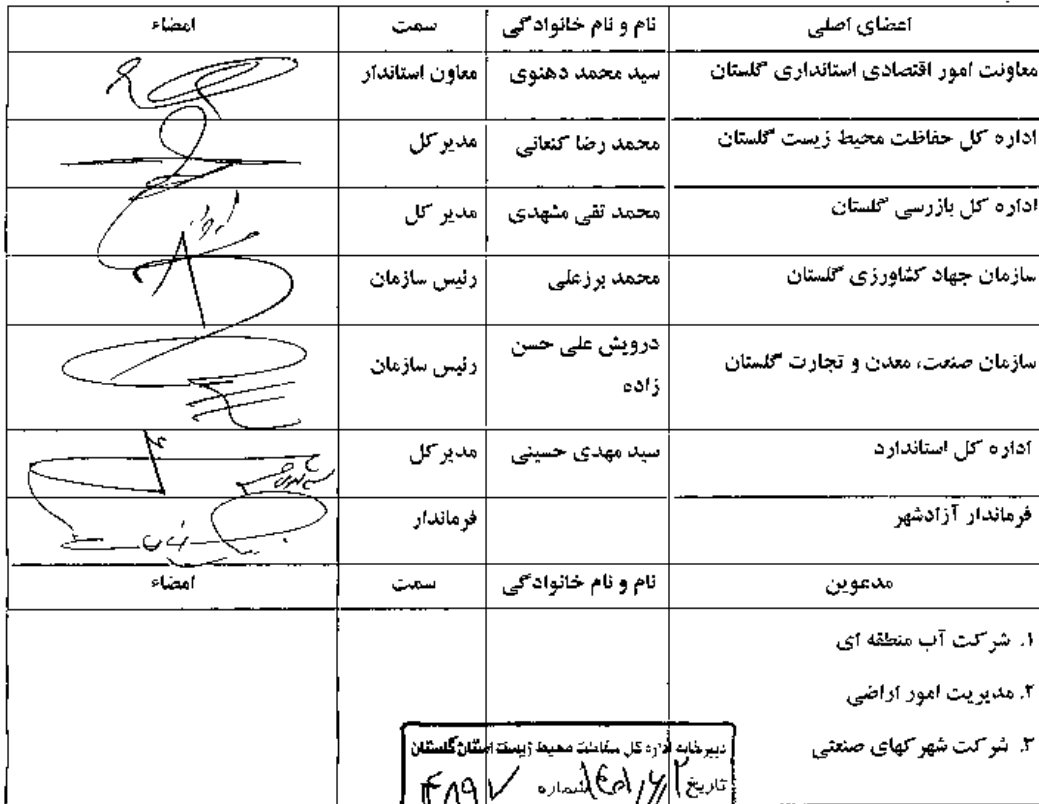 اعضای اصلی نام و نام خانوادگی سمت امضاء
معاونت امور اقتصادی استانداری گلستان سید محمد دهنوی معاون استاندار
اداره کل حفاظت محیط زیست گلستان محمد رضا کنعانی مدیر کل
اداره کل بازرسی گلستان محمد تقی مشهدی مدیر کل
سازمان جهاد کشاورزی گلستان محمد برزعلی رئیس سازمان
سازمان صنعت، معدن و تجارت گلستان درویش علی حسن رئیس سازمان
زاده
اداره کل استاندارد سید مهدی حسینی مدیر کل
فرماندار آزادشهر فرماندار
مدعوین نام و نام خانوادگی سمت امضاء
۱. شرکت آب منطقه ای
۲. مدیریت امور اراضی
۳. شرکت شهرکهای صنعتی
دبیرخانه اداره کل حفاظت محیط زیست استان گلستان
تاریخ شماره